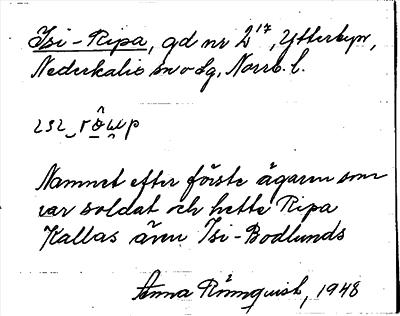 Isi-Ripa, gd nr 2¹⁷, Ytterbyn,
Nederkalix sn o. sg, Norrb. l.
Namnet efter förste ägaren som
var soldat och hette Ripa
Kallas även Isi-Bodlunds
Anna Rönnquist, 1948